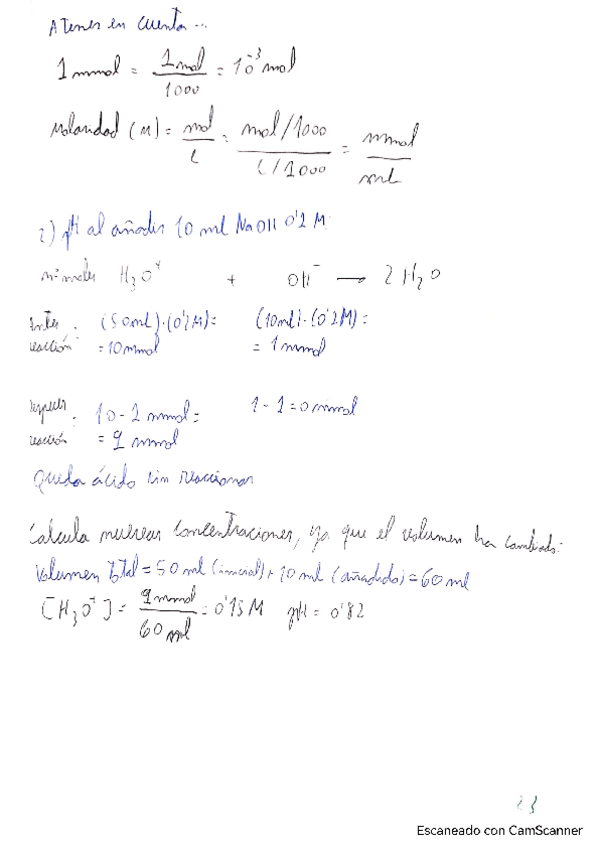 A tener en cuenta...
1 mmol = 1 mol / 1000 = 10^-3 mol
Molaridad (M) = mol / L = mol/1000 / L/1000 = mmol / mL
2) pH al añadir 10 ml NaOH 0'2 M
nº moles H3O+ + OH- → 2 H2O
Antes reacción : (50ml)·(0'2M) = = 10 mmol (10ml)·(0'2M) = = 1 mmol
Después reacción : 10 - 1 mmol = = 9 mmol 1 - 1 = 0 mmol
Queda ácido sin reaccionar
Calcula nuevas concentraciones, ya que el volumen ha cambiado:
Volumen Total = 50 ml (inicial) + 10 ml (añadido) = 60 ml
[H3O+] = 9 mmol / 60 ml = 0'15 M pH = 0'82
23
Escaneado con CamScanner